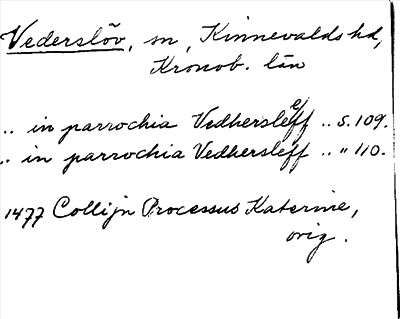 Vederslöv, sn, Kinnevalds hd,
Kronob. län
.. in parrochia Vedhersleff .. s. 109.
.. in parrochia Vedhersleff .. " 110.
1477 Collijn Processus Katerine,
orig.